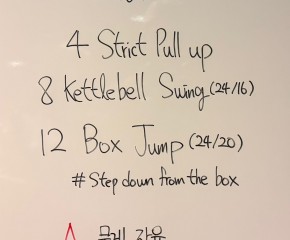 4 Strict Pull up
8 Kettlebell Swing (24/16)
12 Box Jump (24/20)
# Step down from the box